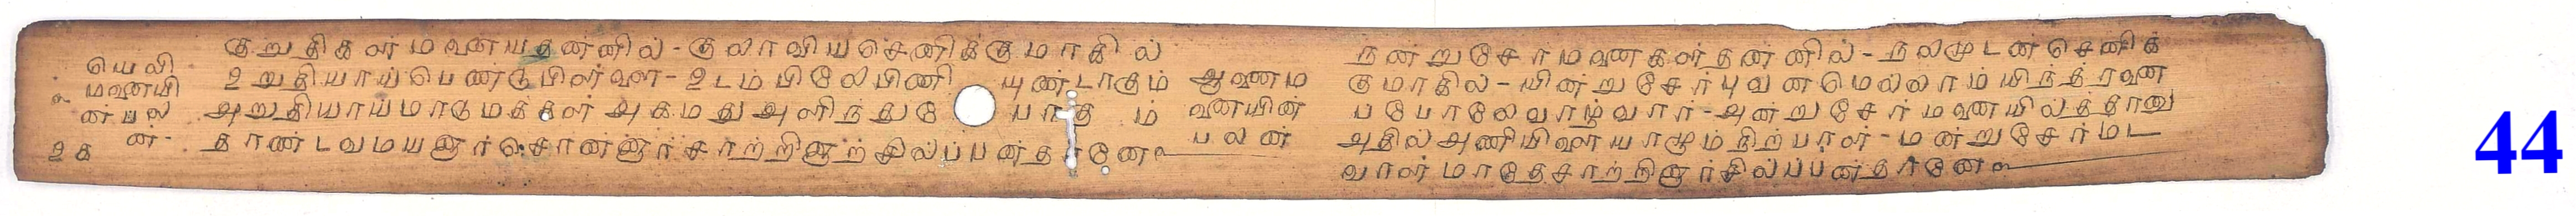 யெலி
மனையி
ன்பல
ன்-
உக
குறுதிகள்மனையதன்னில்-குலாவியசெனிக்குமாகில்
உறுதியாய்பெண்டுபிள்ளை-உடம்பிலேபிணி யுண்டாகும்
அறுதியாய்மாடுமக்கள் அகமது அளிந்துபோ
தாண்டவமயனூர்சொன்னார்சாற்றினார்சில்ப்பன்தானே
ஆனைம
னையின்
பலன்
நன்றுசேர்மனைகள்தன்னில்-நலமுடன்செனிக்
குமாகில்-யின்றுசேர்புவனமெல்லாம்யிந்திரனை
ப்போலேவாழ்வார்-அன்றுசேர்மனையில்த்தானு
அதில்அணியிளையாளும்நிற்பாள்-மன்றுசேர்மட
வாள்மாதேசாற்றினார்சில்ப்பன்தானே